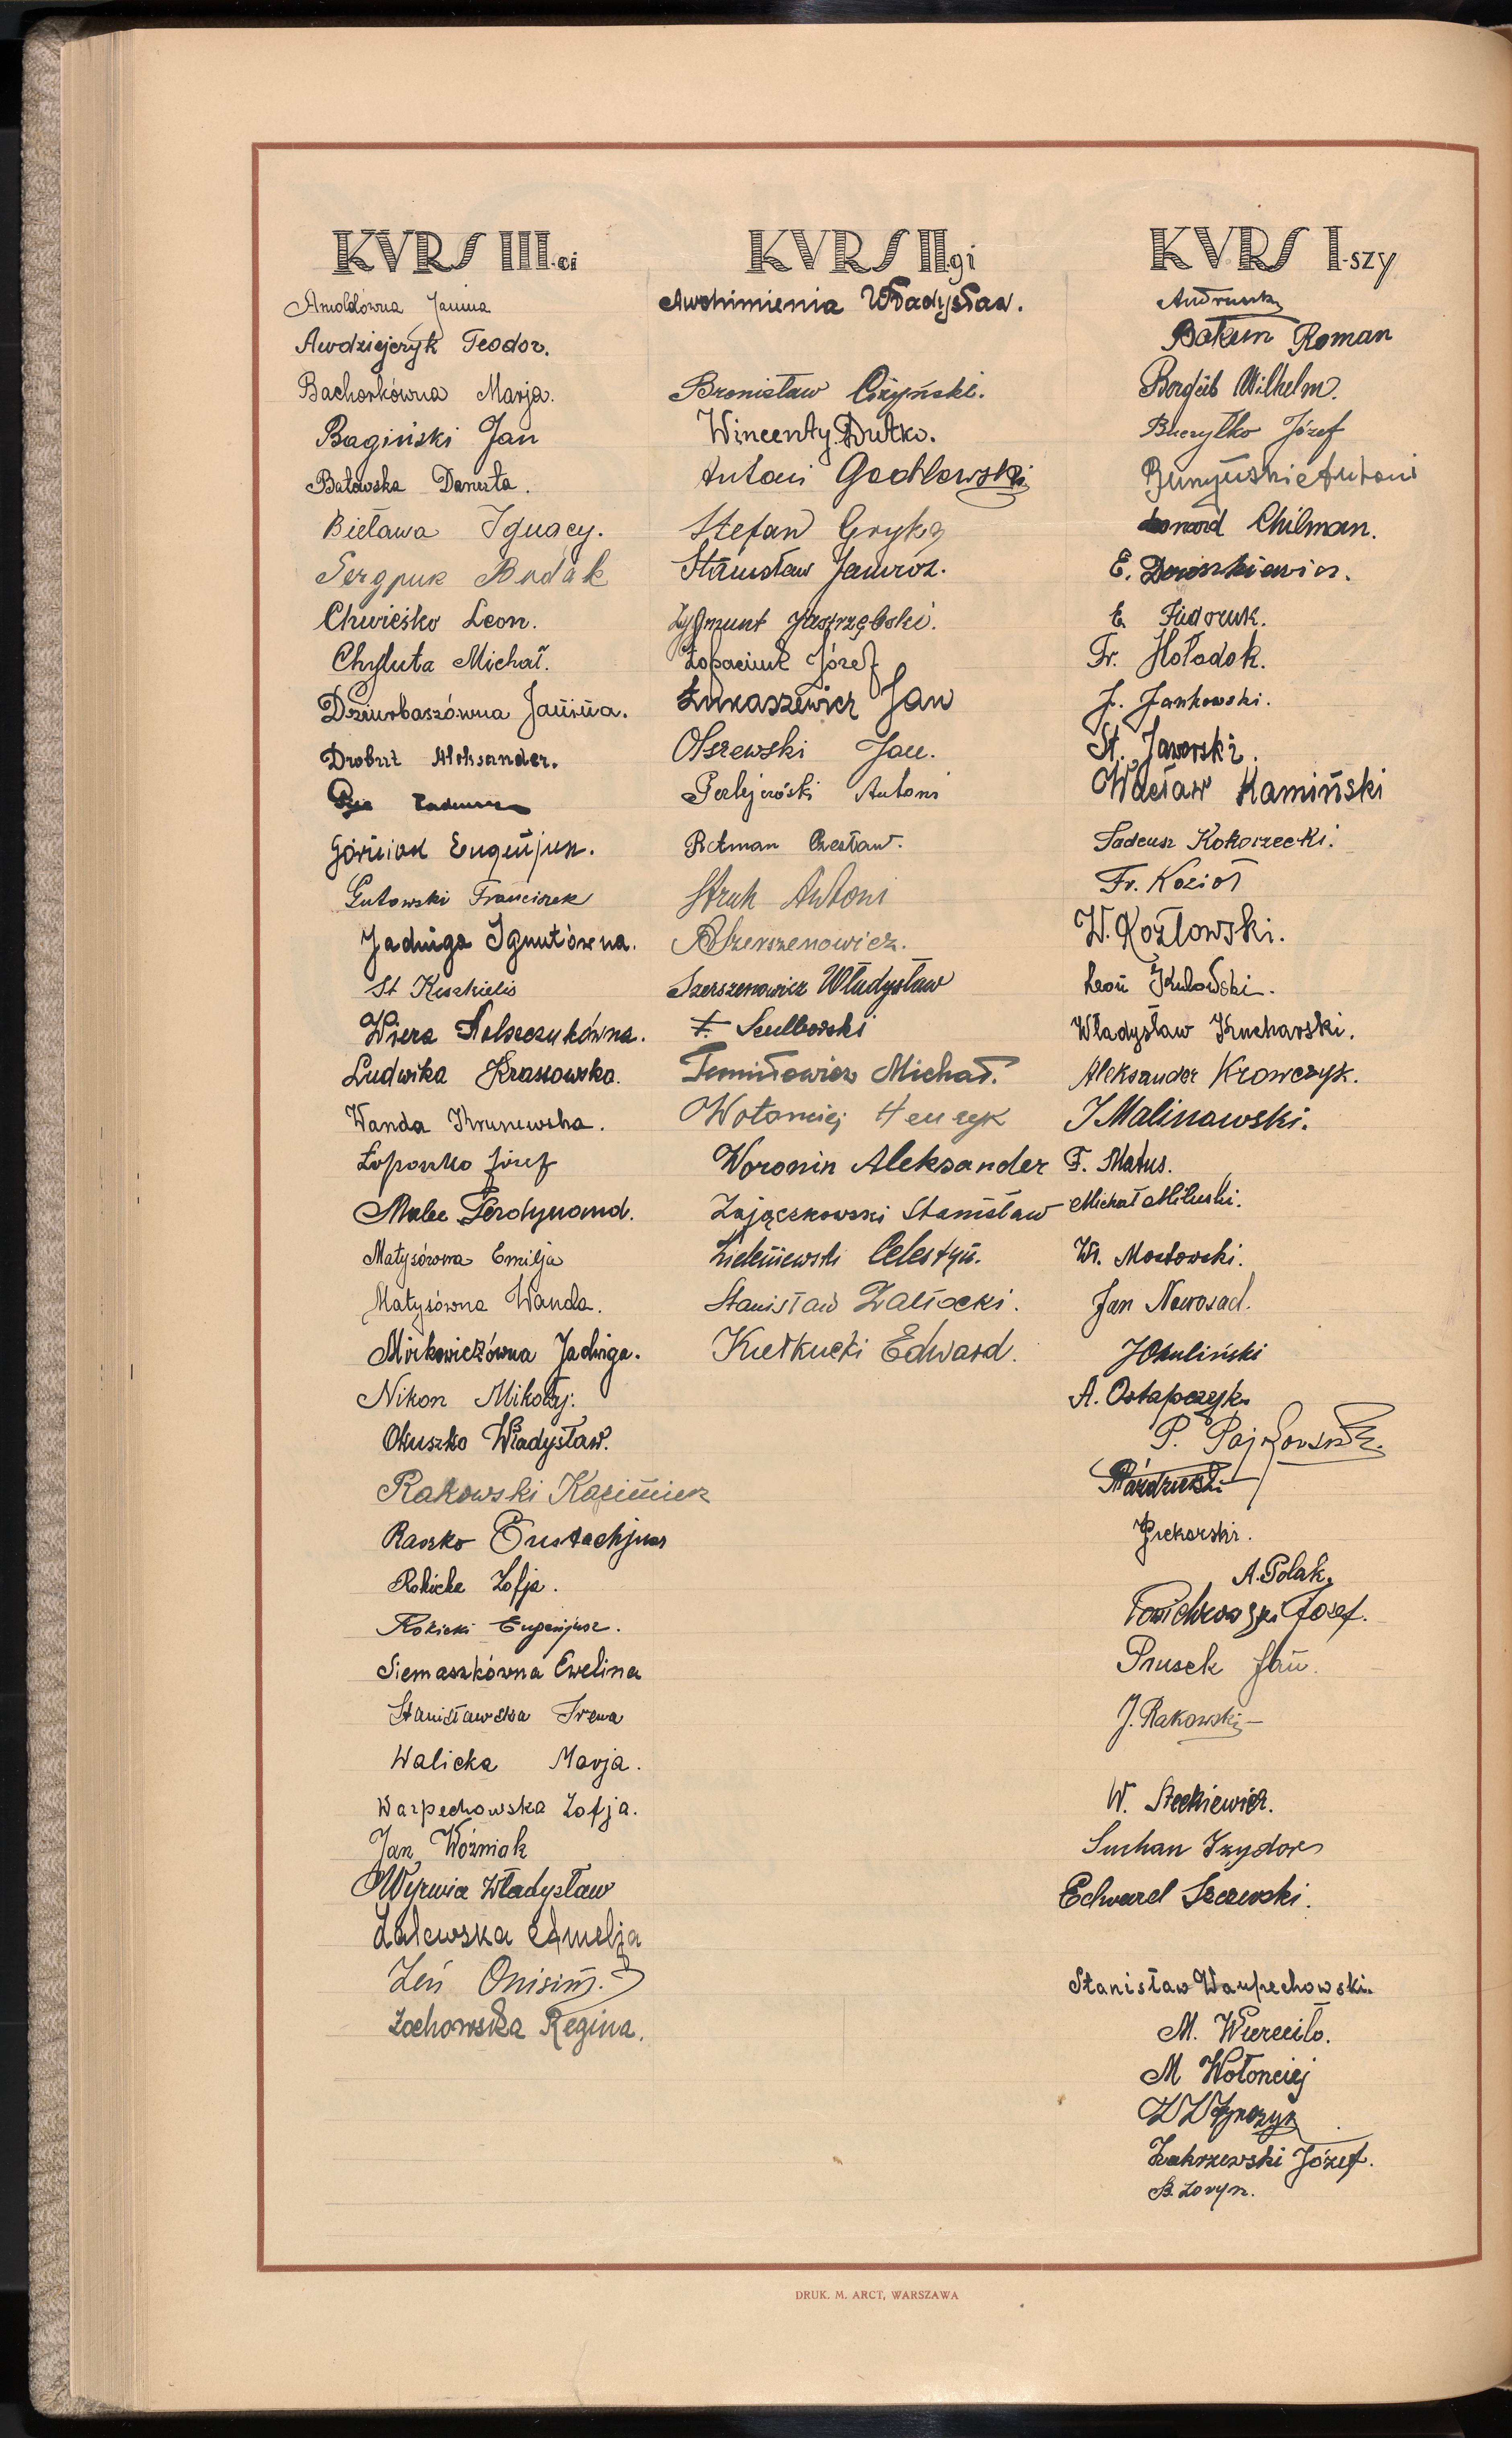 KVRS III-ci
Arnoldówna Janina
Awdziejczyk Teodor.
Bachorkówna Marja.
Bagiński Jan
Batowska Danuta.
Bieława Ignacy.
Sergjusz Budak
Chwieśko Leon.
Chyluta Michał.
Dziurbaszówna Janina.
Drobut Aleksander.
Tadeusz
Górniak Eugenjusz.
Gutowski Franciszek
Jadwiga Ignutówna.
St Keszkielis
Wiera
Ludwika Krassowska.
Wanda Krunewska.
Łoposzko Józef
Malec Ferdynand.
Matysówna Emilja
Matysówna Wanda.
Mirkowiczówna Jadwiga.
Nikon Mikołaj.
Okuszko Władysław.
Rakowski Kazimierz
Raszko Eustachjusz
Rokicka Zofja.
Rokicki Eugenjusz.
Siemaszkówna Ewelina
Stanisławska Irena
Walicka Marja.
Warpechowska Zofja.
Jan Woźniak
Wyrwia Władysław
Zalewska Amelja
Zeń Onisim.
Żochowska Regina.
KVRS II-gi
Awchimienia Władysław.
Bronisław Ciżyński.
Wincenty Dutko.
Antoni Godlewski
Stefan Gryka
Stanisław Jamróz.
Zygmunt Jastrzębski.
Łopaciuk Józef
Łukaszewicz Jan
Olszewski Jan.
Perlejewski Antoni
Rotman Czesław.
Struk Antoni
B Szerszenowicz.
Szerszenowicz Władysław
F. Szulborski
Tomiłowicz Michał.
Wołonciej Henryk
Woronin Aleksander
Zajączkowski Stanisław
Zieleniewski Celestyn.
Stanisław Załiocki.
Kułkucki Edward.
KVRS I-szy
Andruszk
Bakun Roman
Bordjub Wilhelm.
Buczyłko Józef
Antoni
Leonard Chilman.
E. Doroszkiewicz.
E Fiedoruk.
Fr. Hołodok.
J. Jankowski.
St. Jaworski.
Wacław Kamiński
Tadeusz Kokoszecki.
Fr. Kozioł
W. Kozłowski.
Leon Kulowski.
Władysław Kucharski.
Aleksander Krowczyk.
J Malinowski.
F. Matus.
Michał Miluski.
Wł. Mostowski.
Jan Nowosad.
J Okuliński
A. Ostapczyk
P. Pajkowski.
Pazdzierski
Piekarski.
A. Polak.
Powichrowski Józef.
Prusek Jan.
J. Rakowski
W. Steckiewicz.
Suchan Izydor
Edward Szczewski.
Stanisław Warpechowski.
M. Wierciło.
M Wołonciej
Zakrzewski Józef.
B. Zoryn.
DRUK. M. ARCT, WARSZAWA